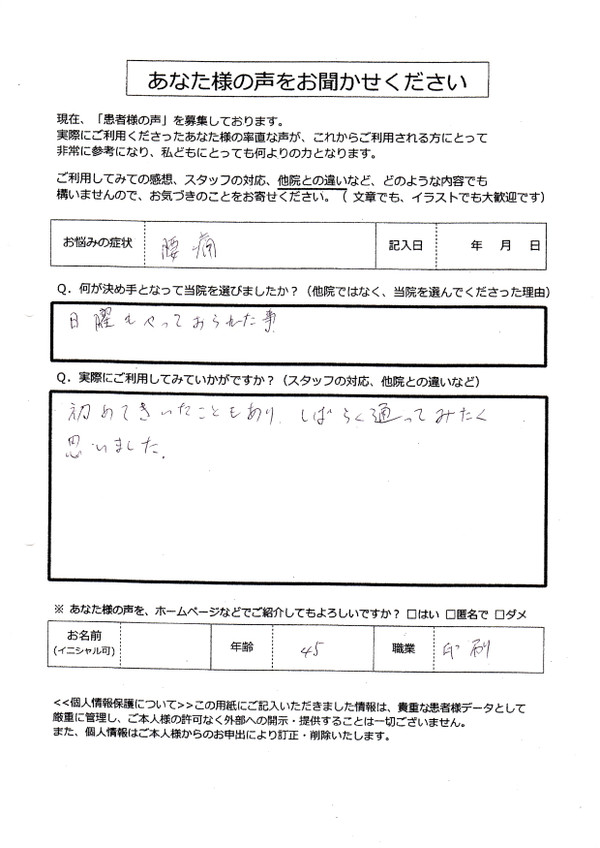 あなた様の声をお聞かせください
現在、「患者様の声」を募集しております。
実際にご利用くださったあなた様の率直な声が、これからご利用される方にとって
非常に参考になり、私どもにとっても何よりの力となります。
ご利用してみての感想、スタッフの対応、他院との違いなど、どのような内容でも
構いませんので、お気づきのことをお寄せください。（ 文章でも、イラストでも大歓迎です）
お悩みの症状 腰痛 記入日 年 月 日
Q．何が決め手となって当院を選びましたか？（他院ではなく、当院を選んでくださった理由）
日曜もやっておられた事
Q．実際にご利用してみていかがですか？（スタッフの対応、他院との違いなど）
初めてきいたこともあり、しばらく通ってみたく
思いました。
※ あなた様の声を、ホームページなどでご紹介してもよろしいですか？ □はい □匿名で □ダメ
お名前 年齢 45 職業 印刷
(イニシャル可)
<<個人情報保護について>>この用紙にご記入いただきました情報は、貴重な患者様データとして
厳重に管理し、ご本人様の許可なく外部への開示・提供することは一切ございません。
また、個人情報はご本人様からのお申出により訂正・削除いたします。